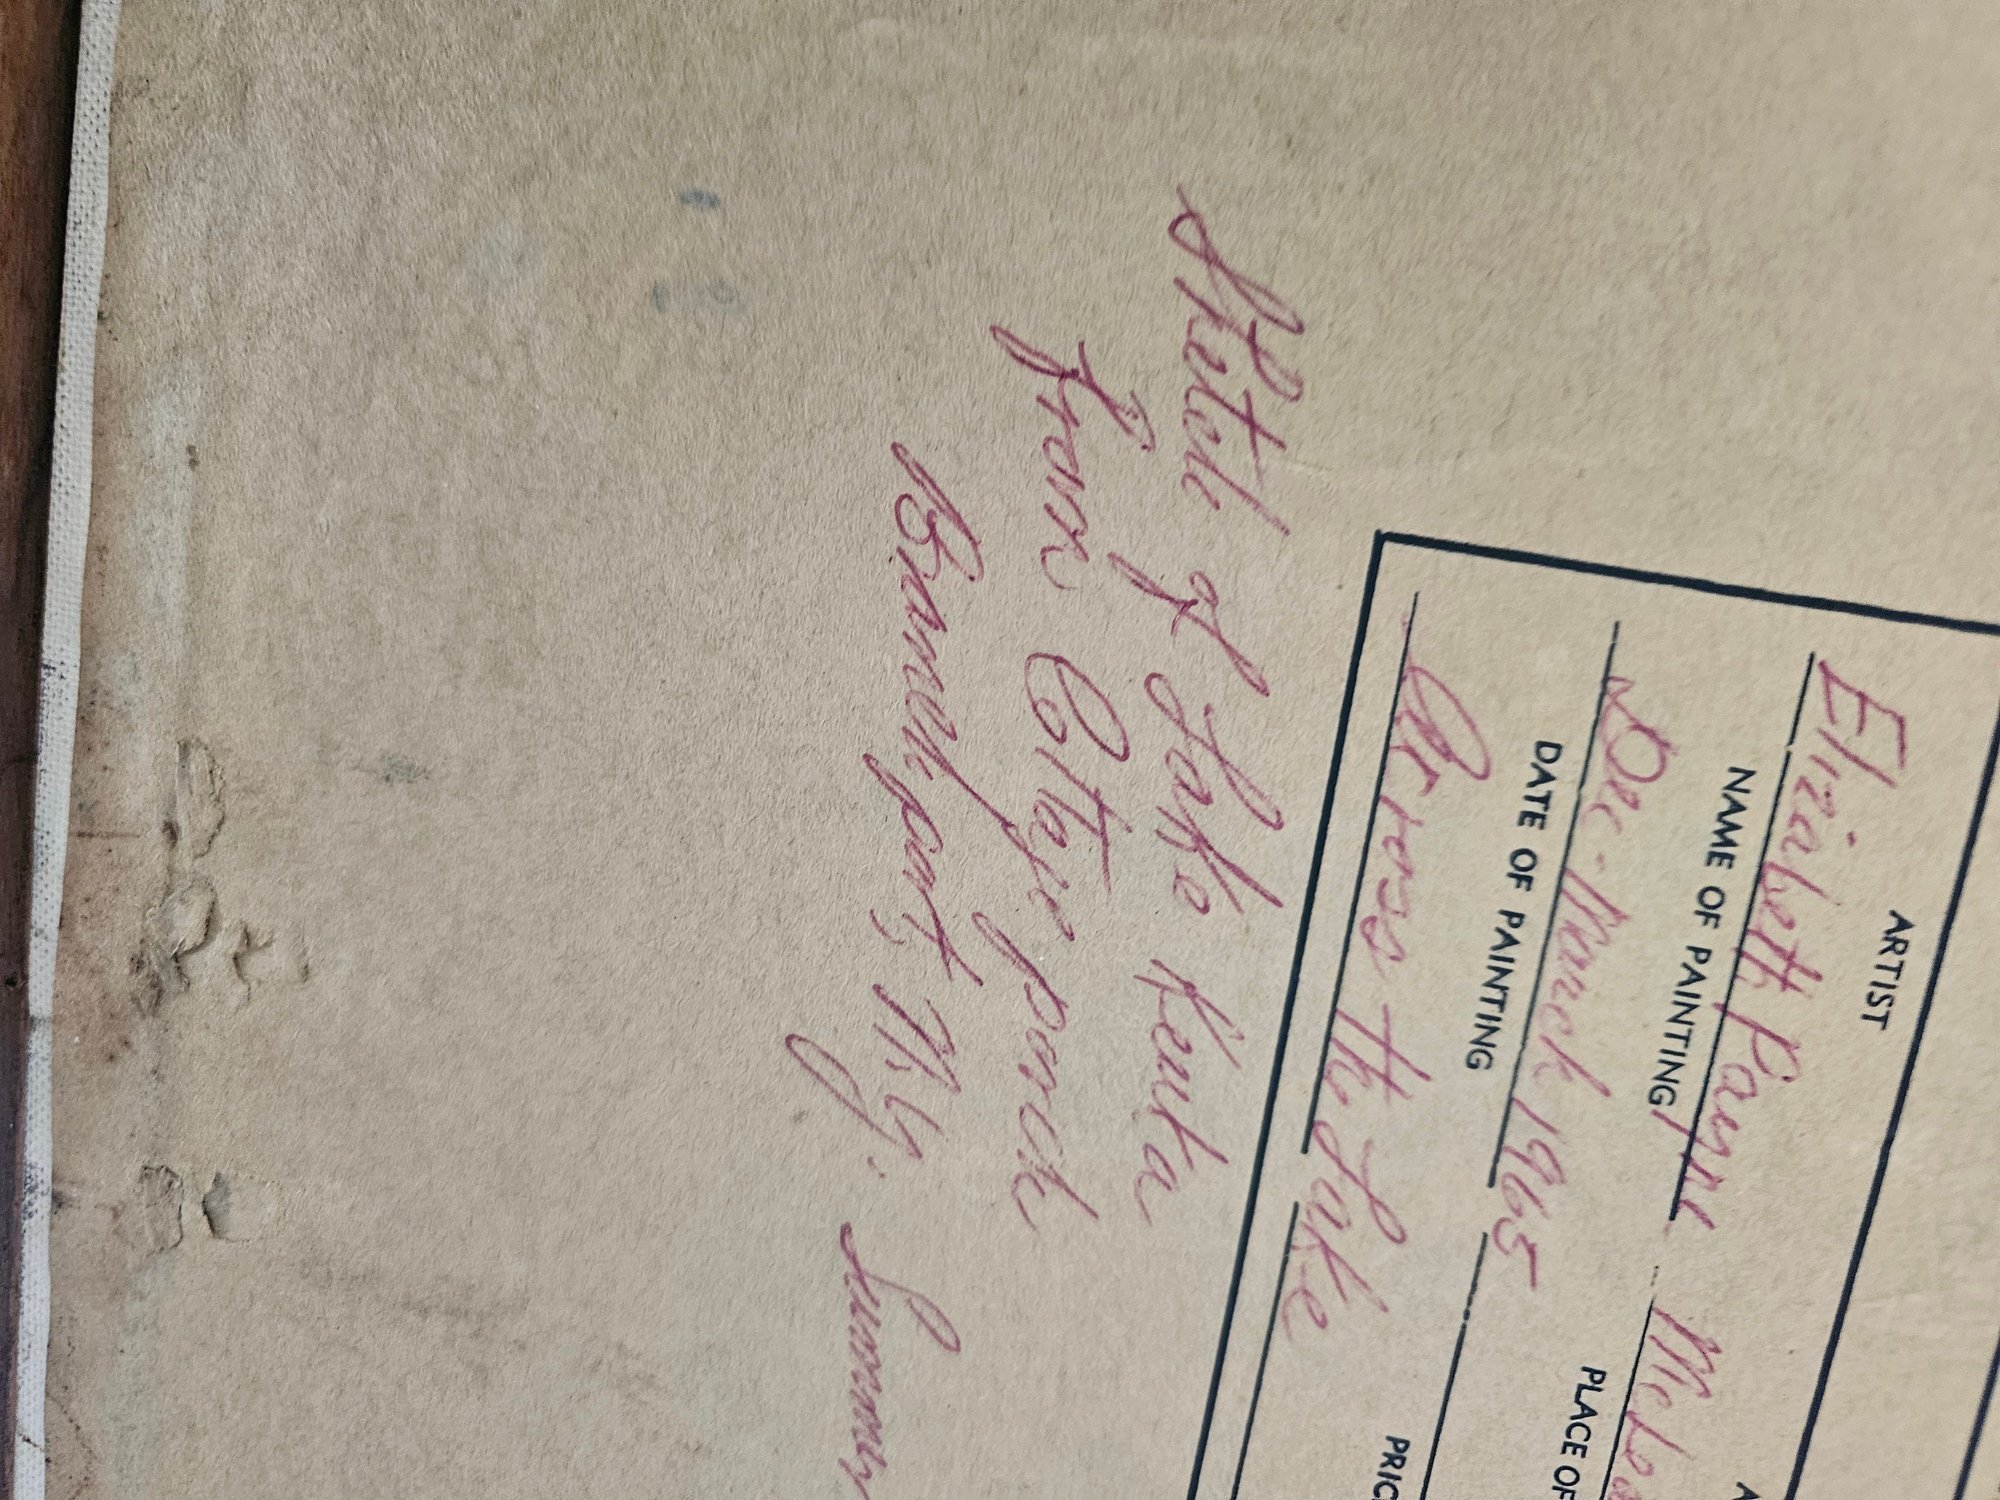 ARTIST
Elizabeth Payne
NAME OF PAINTING PLACE OF
Dec - March 1965
DATE OF PAINTING
Across the Lake
Sketch of Lake Keuka
from Cottage porch
Branchport, N.Y. Summer